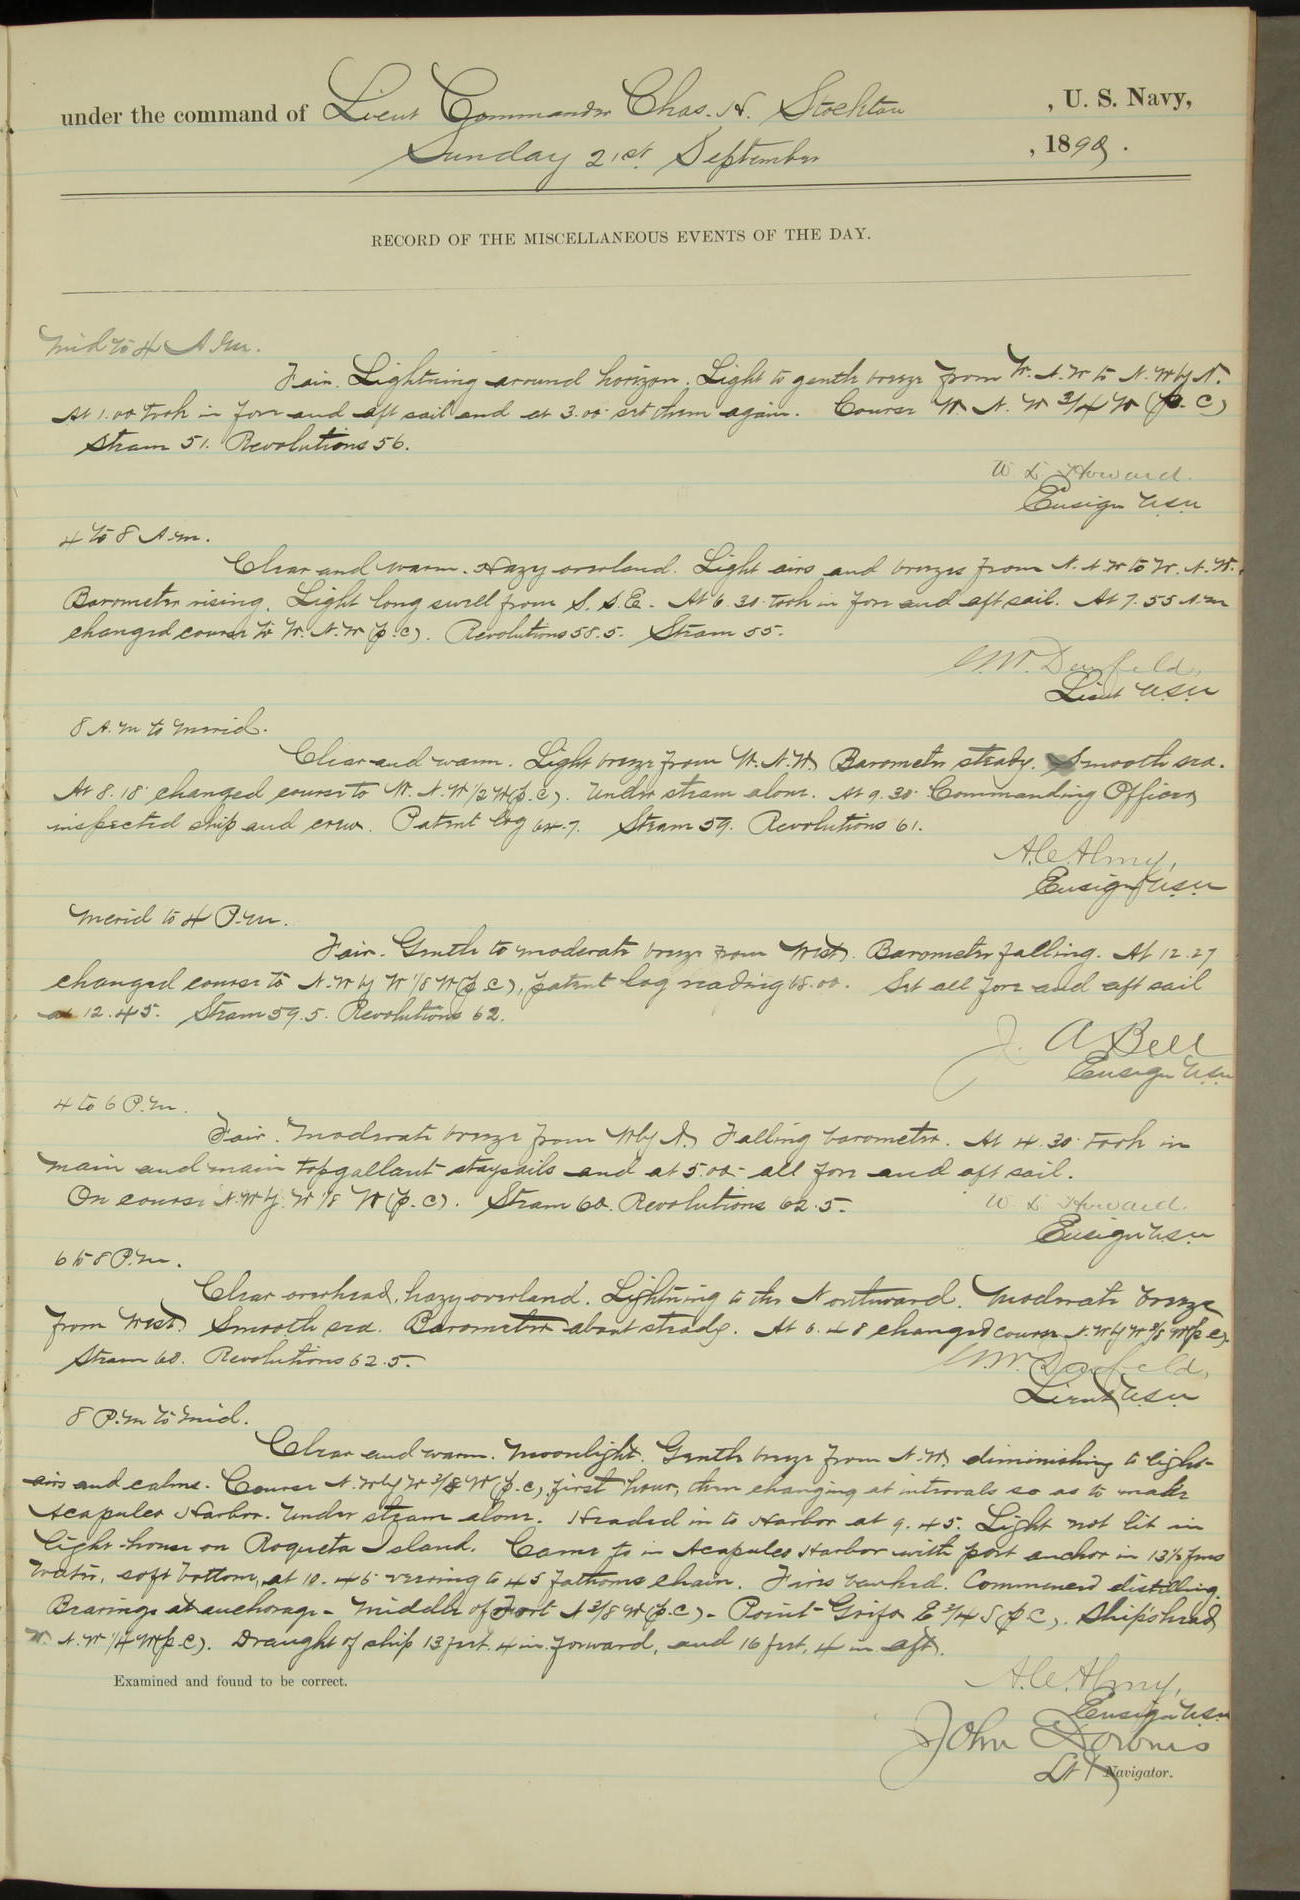 under the command of Lieut Commander Chas. H. Stockton , U. S. Navy,
Sunday 21st September , 1890.
RECORD OF THE MISCELLANEOUS EVENTS OF THE DAY.
Mid to 4 A.M.
Fair. Lightning around horizon. Light to gentle breeze from W.N.W to N.W by N.
At 1.00 took in fore and aft sail and at 3.00 set them again. Course W N. W 3/4 W (p. c)
Steam 51. Revolutions 56.
W L Howard.
Ensign USN
4 to 8 A.M.
Clear and warm. Hazy overland. Light airs and breezes from N.N.W to W.N.W.
Barometer rising. Light long swell from S.S.E. At 6.30 took in fore and aft sail. At 7.55 A.M
changed course to W.N.W (p.c). Revolutions 58.5. Steam 55.
Lieut USN
8 A.M to Merid.
Clear and warm. Light breeze from W.N.W. Barometer steady. Smooth sea.
At 8.18 changed course to W.N.W 1/2 W (p.c). Under steam alone. At 9.30 Commanding Officer
inspected ship and crew. Patent log 64.7. Steam 59. Revolutions 61.
A.C. Almy,
Ensign USN
Merid to 4 P.M.
Fair. Gentle to moderate breeze from West. Barometer falling. At 12.27
changed course to N.W by W 1/8 W (p c), patent log reading 68.00. Set all fore and aft sail
at 12.45. Steam 59.5. Revolutions 62.
J. A Bell
Ensign USN
4 to 6 P.M.
Fair. Moderate breeze from W by N. Falling barometer. At 4.30 took in
main and main topgallant staysails and at 5.00 all fore and aft sail.
On course N.W by W 1/8 W (p.c). Steam 60. Revolutions 62.5.
W L Howard.
Ensign USN
6 to 8 P.M.
Clear overhead, hazy overland. Lightning to the Northward. Moderate breeze
from West. Smooth sea. Barometer about steady. At 6.48 changed course N.W by W 3/8 W (p c).
Steam 60. Revolutions 62.5.
Lieut USN
8 P.M to Mid.
Clear and warm. Moonlight. Gentle breeze from N.W. diminishing to light
airs and calms. Course N.W by W 3/8 W (p.c), first hour, then changing at intervals so as to make
Acapulco Harbor. Under steam alone. Headed in to Harbor at 9.45. Light not lit in
light-house on Roqueta Island. Came to in Acapulco Harbor with port anchor in 13 1/2 fms
water, soft bottom, at 10.45 veering to 45 fathoms chain. Fires banked. Commenced distilling.
Bearings at anchorage - Middle of Fort N 3/8 W (p.c) - Point Grifo E 3/4 S (p c). Ship's head
W. N.W 1/4 W (p.c). Draught of ship 13 feet, 4 in. forward, and 16 feet, 4 in aft.
Examined and found to be correct.
A.C. Almy,
Ensign USN
John Downes
Lt & Navigator.